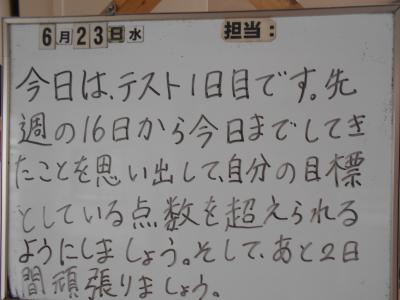 6月23日水 担当:
今日は、テスト1日目です。先
週の16日から今日までしてき
たことを思い出して、自分の目標
としている点数を超えられる
ようにしましょう。そして、あと2日
間頑張りましょう。